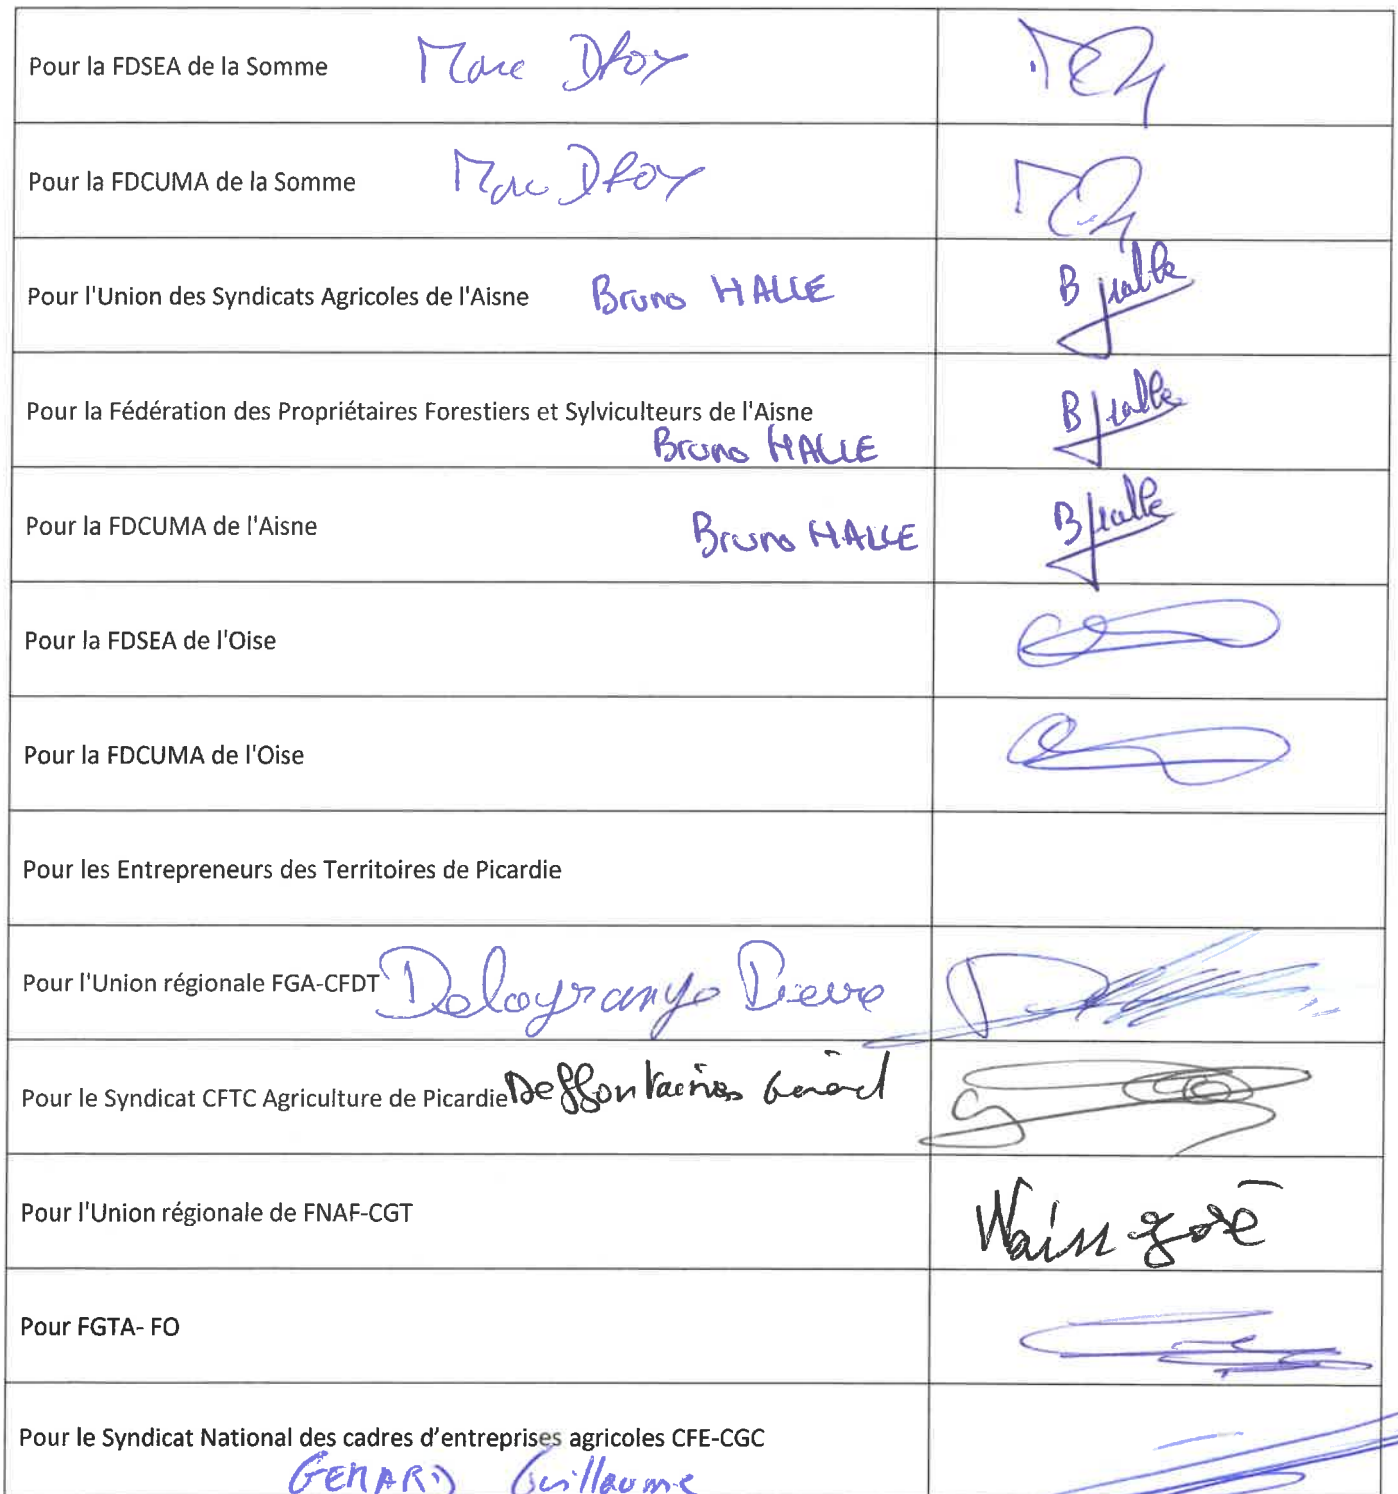 Pour la FDSEA de la Somme Marc DROY
Pour la FDCUMA de la Somme Marc DROY
Pour l'Union des Syndicats Agricoles de l'Aisne Bruno HALLE B Halle
Pour la Fédération des Propriétaires Forestiers et Sylviculteurs de l'Aisne
Bruno HALLE B Halle
Pour la FDCUMA de l'Aisne Bruno HALLE B Halle
Pour la FDSEA de l'Oise
Pour la FDCUMA de l'Oise
Pour les Entrepreneurs des Territoires de Picardie
Pour l'Union régionale FGA-CFDT Delagrange Pierre
Pour le Syndicat CFTC Agriculture de Picardie Deffontaines Gérard
Pour l'Union régionale de FNAF-CGT
Pour FGTA- FO
Pour le Syndicat National des cadres d’entreprises agricoles CFE-CGC
Guillaume